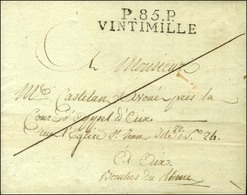 P.85.P
VINTIMILLE
A Monsieur
Mr Castelan avoué près la
Cour d'
Rue Église St Jean No 26
à Aix
Bouches du Rhône